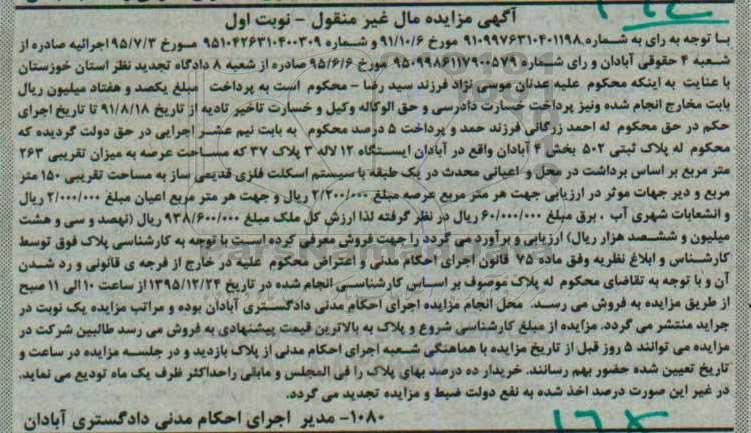 آگهی مزایده مال غیر منقول - نوبت اول
با توجه به رای به شماره ۹۱۰۹۹۷۶۳۱۰۴۰۱۱۹۸ مورخ ۹۱/۱۰/۶ و شماره ۹۵۱۰۴۲۶۳۱۰۴۰۰۳۰۹ مورخ ۹۵/۷/۳ اجرائیه صادره از
شعبه ۴ حقوقی آبادان و رای شماره ۹۵۰۹۹۸۶۱۱۷۹۰۰۵۷۹ مورخ ۹۵/۶/۶ صادره از شعبه ۸ دادگاه تجدید نظر استان خوزستان
با عنایت به اینکه محکوم علیه عدنان موسی نژاد فرزند سید رضا - محکوم است به پرداخت مبلغ یکصد و هفتاد میلیون ریال
بابت مخارج انجام شده ونیز پرداخت خسارت دادرسی و حق الوکاله وکیل و خسارت تاخیر تادیه از تاریخ ۹۱/۸/۱۸ تا تاریخ اجرای
حکم در حق محکوم له احمد زرگانی فرزند حمد و پرداخت ۵ درصد محکوم به بابت نیم عشر اجرایی در حق دولت گردیده که
محکوم له پلاک ثبتی ۵۰۲ بخش ۴ آبادان واقع در آبادان ایستگاه ۱۲ لاله ۳ پلاک ۳۷ که مساحت عرصه به میزان تقریبی ۲۶۳
متر مربع بر اساس برداشت در محل و اعیانی محدث در یک طبقه با سیستم اسکلت فلزی قدیمی ساز به مساحت تقریبی ۱۵۰ متر
مربع و دیر جهات موثر در ارزیابی جهت هر متر مربع عرصه مبلغ ۲/۲۰۰/۰۰۰ ریال و جهت هر متر مربع اعیان مبلغ ۲/۰۰۰/۰۰۰ ریال
و انشعابات شهری آب ، برق مبلغ ۶۰/۰۰۰/۰۰۰ ریال در نظر گرفته لذا ارزش کل ملک مبلغ ۹۳۸/۶۰۰/۰۰۰ ریال (نهصد و سی و هشت
میلیون و ششصد هزار ریال) ارزیابی و برآورد می گردد را جهت فروش معرفی کرده است با توجه به کارشناسی پلاک فوق توسط
کارشناس و ابلاغ نظریه وفق ماده ۷۵ قانون اجرای احکام مدنی و اعتراض محکوم علیه در خارج از فرجه ی قانونی و رد شدن
آن و با توجه به تقاضای محکوم له پلاک موصوف بر اساس کارشناسی انجام شده در تاریخ ۱۳۹۵/۱۲/۲۴ از ساعت ۱۰ الی ۱۱ صبح
از طریق مزایده به فروش می رسد. محل انجام مزایده اجرای احکام مدنی دادگستری آبادان بوده و مراتب مزایده یک نوبت در
جراید منتشر می گردد. مزایده از مبلغ کارشناسی شروع و پلاک به بالاترین قیمت پیشنهادی به فروش می رسد طالبین شرکت در
مزایده می توانند ۵ روز قبل از تاریخ مزایده با هماهنگی شعبه اجرای احکام مدنی از پلاک بازدید و در جلسه مزایده در ساعت و
تاریخ تعیین شده حضور بهم رسانند. خریدار ده درصد بهای پلاک را فی المجلس و مابقی راحداکثر ظرف یک ماه تودیع می نماید.
در غیر این صورت درصد اخذ شده به نفع دولت ضبط و مزایده تجدید می گردد.
۱۰۸۰- مدیر اجرای احکام مدنی دادگستری آبادان